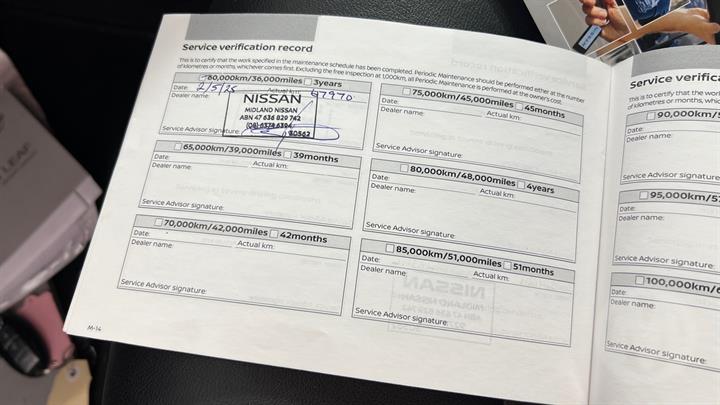 Service verification record
This is to certify that the work specified in the maintenance schedule has been completed. Periodic Maintenance should be performed either at the number
of kilometres or months, whichever comes first. Excluding the free inspection at 1,000km, all Periodic Maintenance is performed at the owner's cost.
60,000km/36,000miles 3years
Date: 2/5/25 Actual km: 47970
Dealer name:
NISSAN
MIDLAND NISSAN
ABN 47 636 820 742
Service Advisor signature: 30562
65,000km/39,000miles 39months
Date: Actual km:
Dealer name:
Service Advisor signature:
70,000km/42,000miles 42months
Date: Actual km:
Dealer name:
Service Advisor signature:
M-14
75,000km/45,000miles 45months
Date: Actual km:
Dealer name:
Service Advisor signature:
80,000km/48,000miles 4years
Date: Actual km:
Dealer name:
Service Advisor signature:
85,000km/51,000miles 51months
Date: Actual km:
Dealer name:
Service Advisor signature:
Service verifica
This is to certify that the work
of kilometres or months, which
90,000km/5
Date:
Dealer name:
Service Advisor signature
95,000km/57
Date:
Dealer name:
Service Advisor signature:
100,000km/6
Date:
Dealer name:
Service Advisor signature:
LEAF